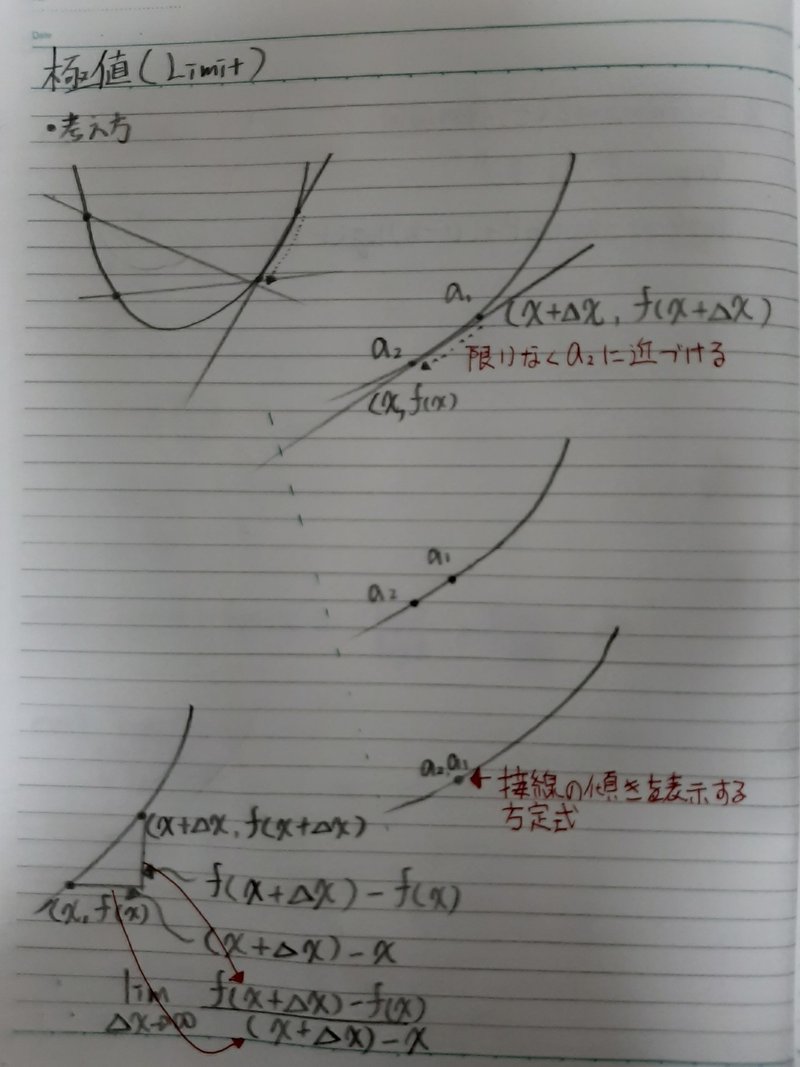 Date
極値(Limit)
・考え方
a₁
(x+Δx, f(x+Δx)
a₂
限りなくa₂に近づける
(x, f(x)
a₁
a₂
a₂a₁
接線の傾きを表示する
方定式
(x+Δx, f(x+Δx)
f(x+Δx)-f(x)
(x, f(x)
(x+Δx)-x
lim f(x+Δx)-f(x)
Δx→∞ (x+Δx)-x